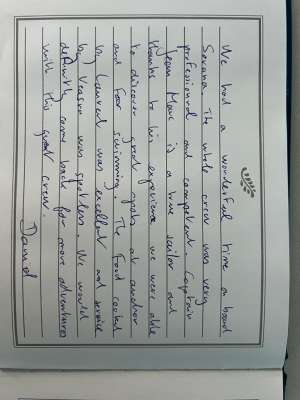 We had a wonderful time on board
Savana. The whole crew was very
professional and competent. Captain
Jean Marc is a true sailor and
thanks to his experience we were able
to discover great spots at anchor
and for swimming. The Food cooked
by Laurent was excellent and service
by was spotless. We would
definitly come back for more adventures
with this great crew.
David